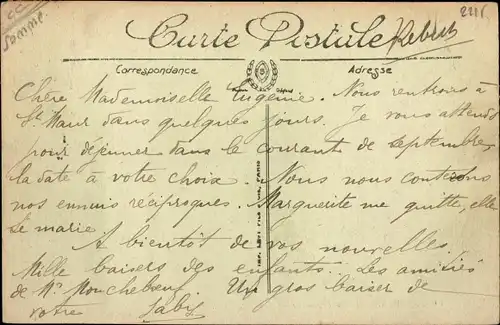 Somme
2215
Carte Postale
Rebut
Correspondance
Adresse
Chère Mademoiselle Eugénie. Nous rentrons à
St Maur dans quelques jours. Je vous attends
pour déjeuner dans le courant de septembre,
la date à votre choix. Nous nous conterons
nos ennuis réciproques. Marguerite me quitte, elle
se marie.
A bientôt de vos nouvelles.
Mille baisers des enfants. Les amitiés
de Mr Moucheboeuf. Un gros baiser de
votre Gaby